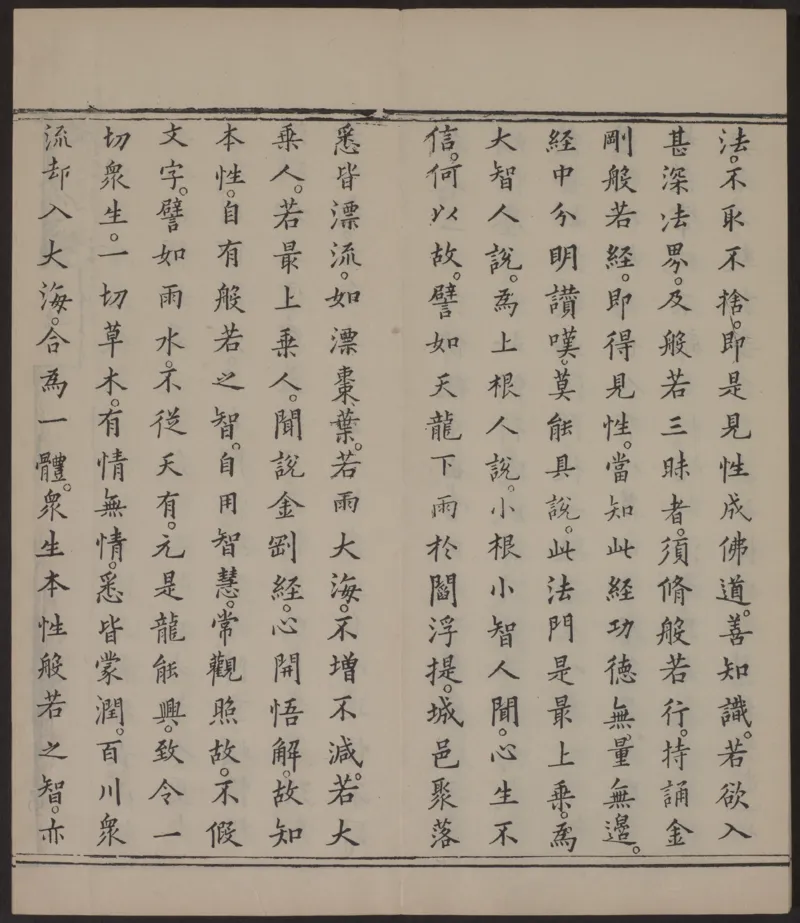 法。不取不捨。即是見性成佛道。善知識。若欲入
甚深法界。及般若三昧者。須脩般若行。持誦金
剛般若經。即得見性。當知此經功德無量無邊。
經中分明讚嘆。莫能具說。此法門是最上乘。爲
大智人說。爲上根人說。小根小智人聞。心生不
信。何以故。譬如天龍下雨於閻浮提。城邑聚落
悉皆漂流。如漂棗葉。若雨大海。不增不減。若大
乗人。若最上乗人。聞說金剛經。心開悟解。故知
本性。自有般若之智。自用智慧。常觀照故。不假
文字。譬如雨水。不從天有。元是龍能興。致令一
切衆生。一切草木。有情無情。悉皆蒙潤。百川衆
流却入大海。合爲一體。衆生本性般若之智。亦